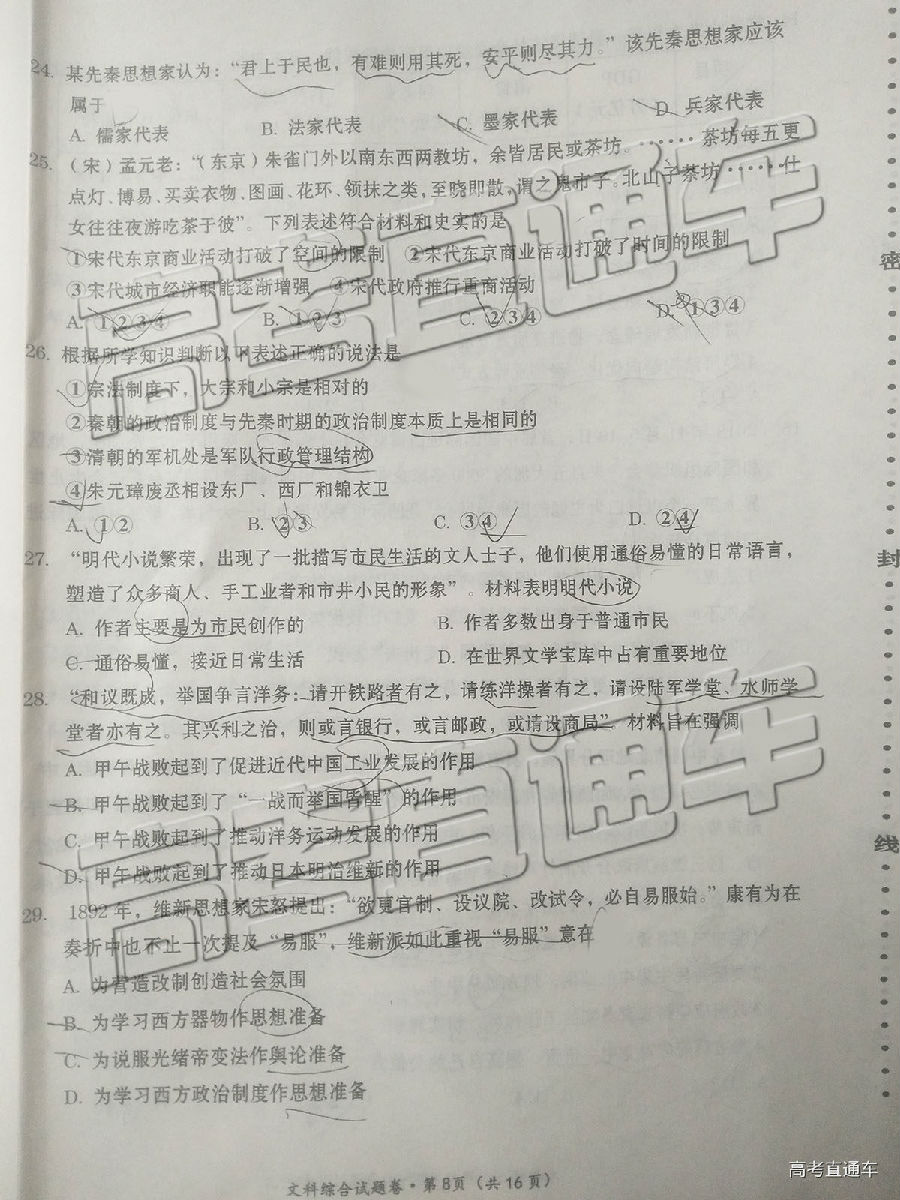 24. 某先秦思想家认为：“君上于民也，有难则用其死，安平则尽其力。”该先秦思想家应该
属于
A. 儒家代表 B. 法家代表 C. 墨家代表 D. 兵家代表
25.（宋）孟元老：“（东京）朱雀门外以南东西两教坊，余皆居民或茶坊。……茶坊每五更
点灯、博易、买卖衣物、图画、花环、领抹之类，至晓即散，谓之鬼市子。北山子茶坊……仕
女往往夜游吃茶于彼”。下列表述符合材料和史实的是
①宋代东京商业活动打破了空间的限制 ②宋代东京商业活动打破了时间的限制
③宋代城市经济职能逐渐增强 ④宋代政府推行重商活动
A. ①②③④ B. ①②③ C. ②③④ D. ①③④
26. 根据所学知识判断以下表述正确的说法是
①宗法制度下，大宗和小宗是相对的
②秦朝的政治制度与先秦时期的政治制度本质上是相同的
③清朝的军机处是军队行政管理结构
④朱元璋废丞相设东厂、西厂和锦衣卫
A. ①② B. ②③ C. ③④ D. ②④
27. “明代小说繁荣，出现了一批描写市民生活的文人士子，他们使用通俗易懂的日常语言，
塑造了众多商人、手工业者和市井小民的形象”。材料表明明代小说
A. 作者主要是为市民创作的 B. 作者多数出身于普通市民
C. 通俗易懂，接近日常生活 D. 在世界文学宝库中占有重要地位
28. “和议既成，举国争言洋务：请开铁路者有之，请练洋操者有之，请设陆军学堂、水师学
堂者亦有之。其兴利之治，则或言银行，或言邮政，或请设商局”。材料旨在强调
A. 甲午战败起到了促进近代中国工业发展的作用
B. 甲午战败起到了“一战而举国皆醒”的作用
C. 甲午战败起到了推动洋务运动发展的作用
D. 甲午战败起到了推动日本明治维新的作用
29. 1892年，维新思想家宋恕提出：“欲更官制、设议院、改试令，必自易服始。”康有为在
奏折中也不止一次提及“易服”，维新派如此重视“易服”意在
A. 为营造改制创造社会氛围
B. 为学习西方器物作思想准备
C. 为说服光绪帝变法作舆论准备
D. 为学习西方政治制度作思想准备
文科综合试题卷·第8页（共16页）
密
封
线
高考直通车
高考直通车
高考直通车